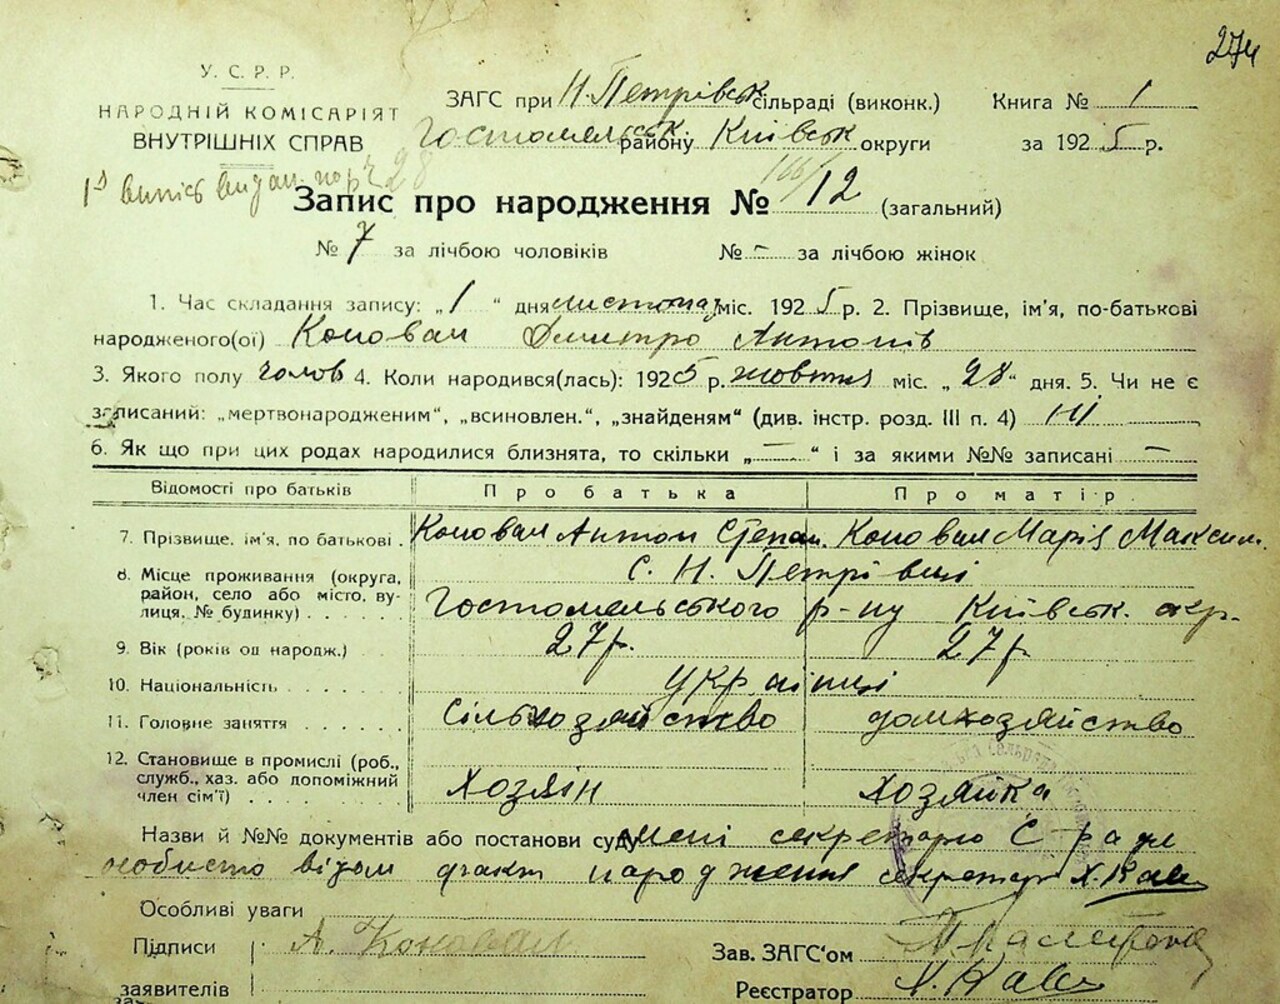 274
У. С. Р. Р.
НАРОДНІЙ КОМІСАРІЯТ
ВНУТРІШНІХ СПРАВ
ЗАГС при Н. Петрівськ сільраді (виконк.) Книга № 1
Гостомельськ. району Київськ округи за 1925 р.
Запис про народження № 12 (загальний)
№ 7 за лічбою чоловіків № – за лічбою жінок
1. Час складання запису: „1“ дня листопад міс. 1925 р. 2. Прізвище, ім'я, по-батькові
народженого(ої) Коновал Дмитро Антонів
3. Якого полу чолов 4. Коли народився(лась): 1925 р. жовтня міс. „28“ дня. 5. Чи не є
записаний: „мертвонародженим“, „всиновлен.“, „знайденям“ (див. інстр. розд. III п. 4) ні
6. Як що при цих родах народилися близнята, то скільки „—“ і за якими №№ записані —
Відомості про батьків Про батька Про матір.
7. Прізвище, ім'я, по батькові . Коновал Антон Степан. Коновал Марія Максим.
8. Місце проживання (округа, район, село або місто, вулиця, № будинку) . . . . . с. Н. Петрівці
Гостомельського р-ну Київськ. окр.
9. Вік (років од народж.) 27 р. 27 р
10. Національність . . . . . . українці
11. Головне заняття . . . . . сільхозяйство домхозяйство
12. Становище в промислі (роб., служб., хаз. або допоміжний член сім'ї) . . . . . Хозяїн Хозяйка
Назви й №№ документів або постанови суду мені секретарю С ради
особисто відом факт народження секретар Х. Кав
Особливі уваги
Підписи А. Коновал Зав. ЗАГС'ом
заявителів Реєстратор Х. Кав